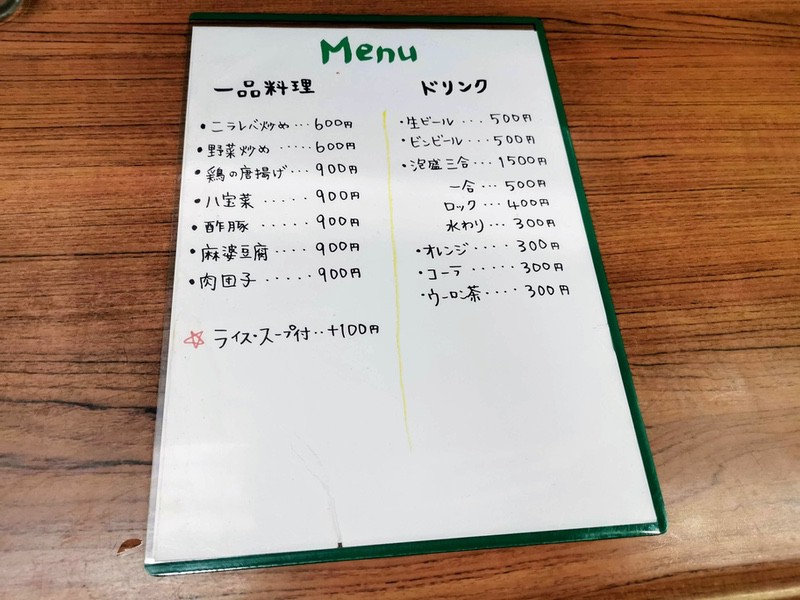 Menu
一品料理
・ニラレバ炒め…600円
・野菜炒め……600円
・鶏の唐揚げ…900円
・八宝菜……900円
・酢豚……900円
・麻婆豆腐….900円
・肉団子……900円
☆ ライス・スープ付‥+100円
ドリンク
・生ビール…. 500円
・ビンビール….500円
・泡盛三合…1500円
一合…500円
ロック…400円
水わり…300円
・オレンジ….300円
・コーラ…..300円
・ウーロン茶….300円